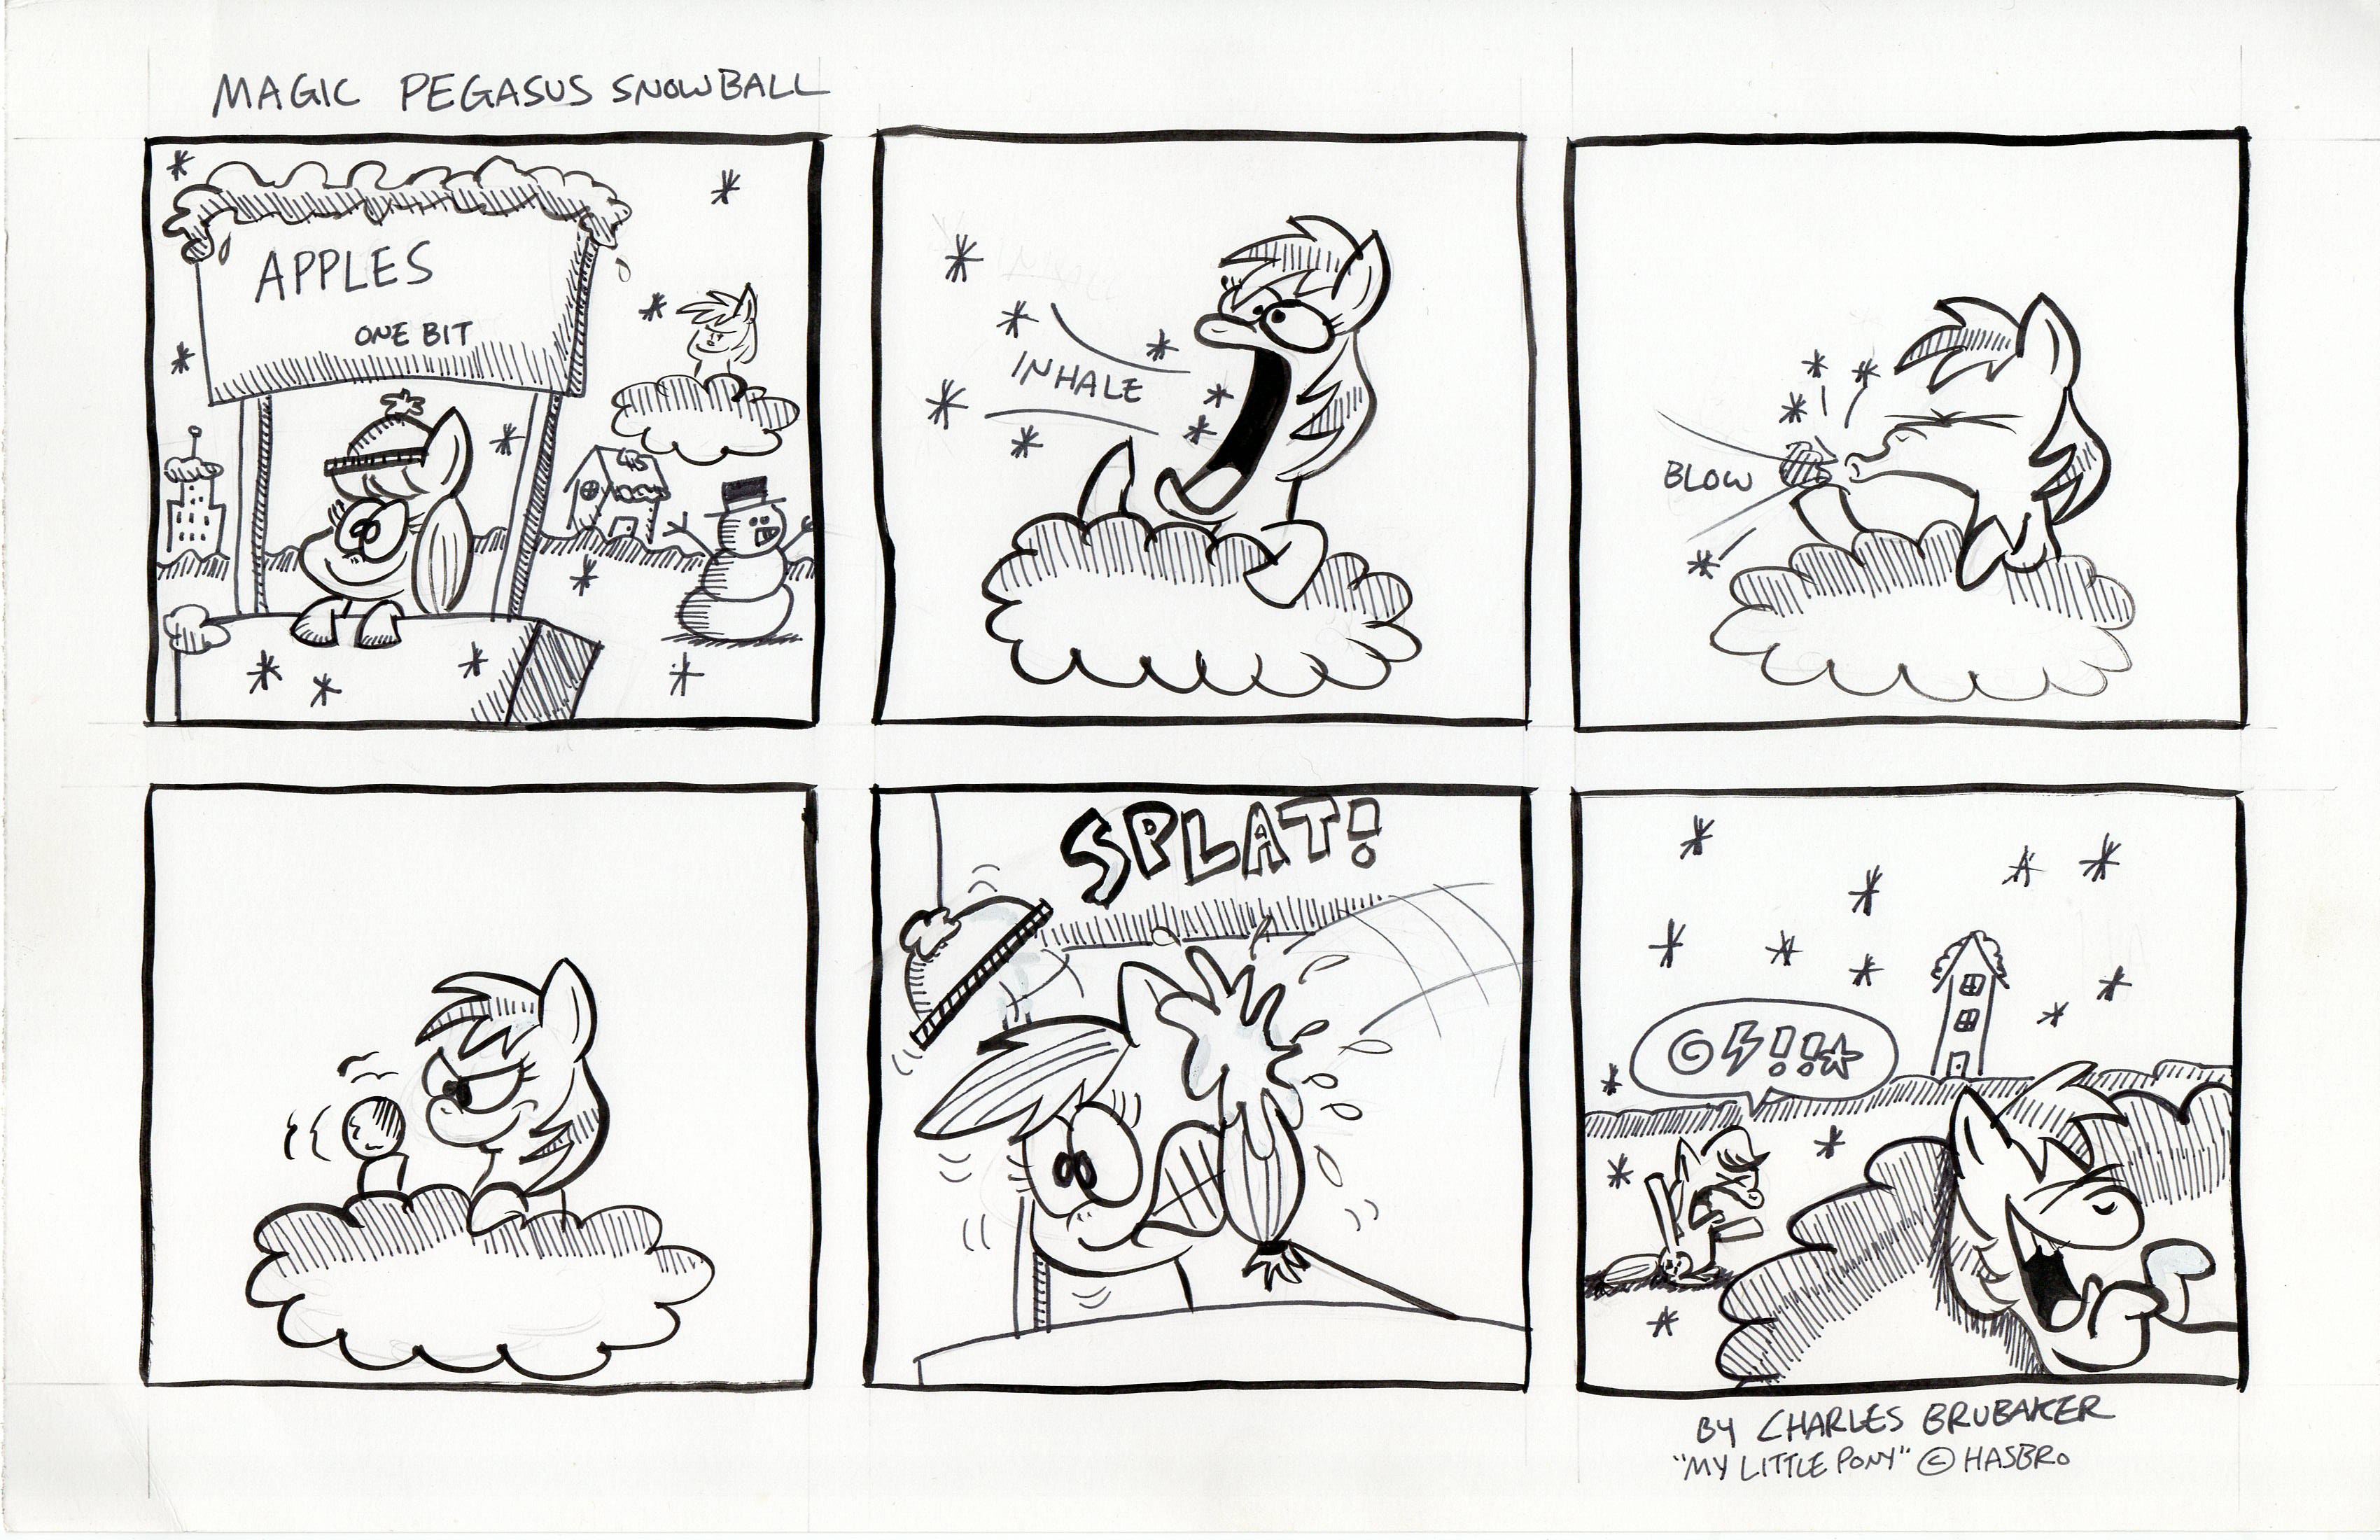 MAGIC PEGASUS SNOWBALL
APPLES
ONE BIT
INHALE
BLOW
SPLAT!
@⚡!!☆
BY CHARLES BRUBAKER
"MY LITTLE PONY" © HASBRO